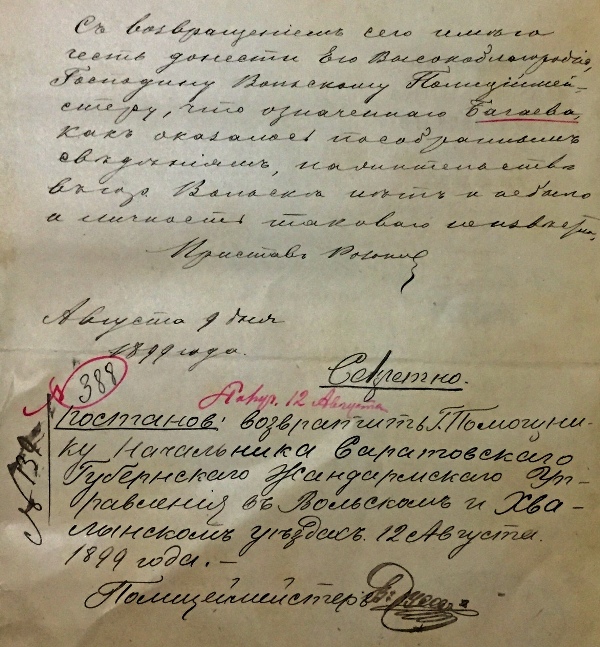 Съ возвращеніемъ сего имѣю
честь донести Его Высокоблагородію,
Господину Вольскому Полицій мей-
стеру, что означеннаго Багаева,
какъ оказалось по собраннымъ
свѣдѣніямъ, на жительствѣ
въ гор. Вольскѣ нѣтъ и не было
и личность таковаго неизвѣстна,
Приставъ
Августа 9 дня
1899 года.
Секретно.
№ 388
Получ. 12 Августа
Постанов: возвратить Г. Помощни-
ку Начальника Саратовскаго
Губернскаго Жандармскаго Уп-
равленія въ Вольскомъ и Хва-
лынскомъ уѣздахъ. 12 Августа
1899 года. —
Полицеймейстеръ